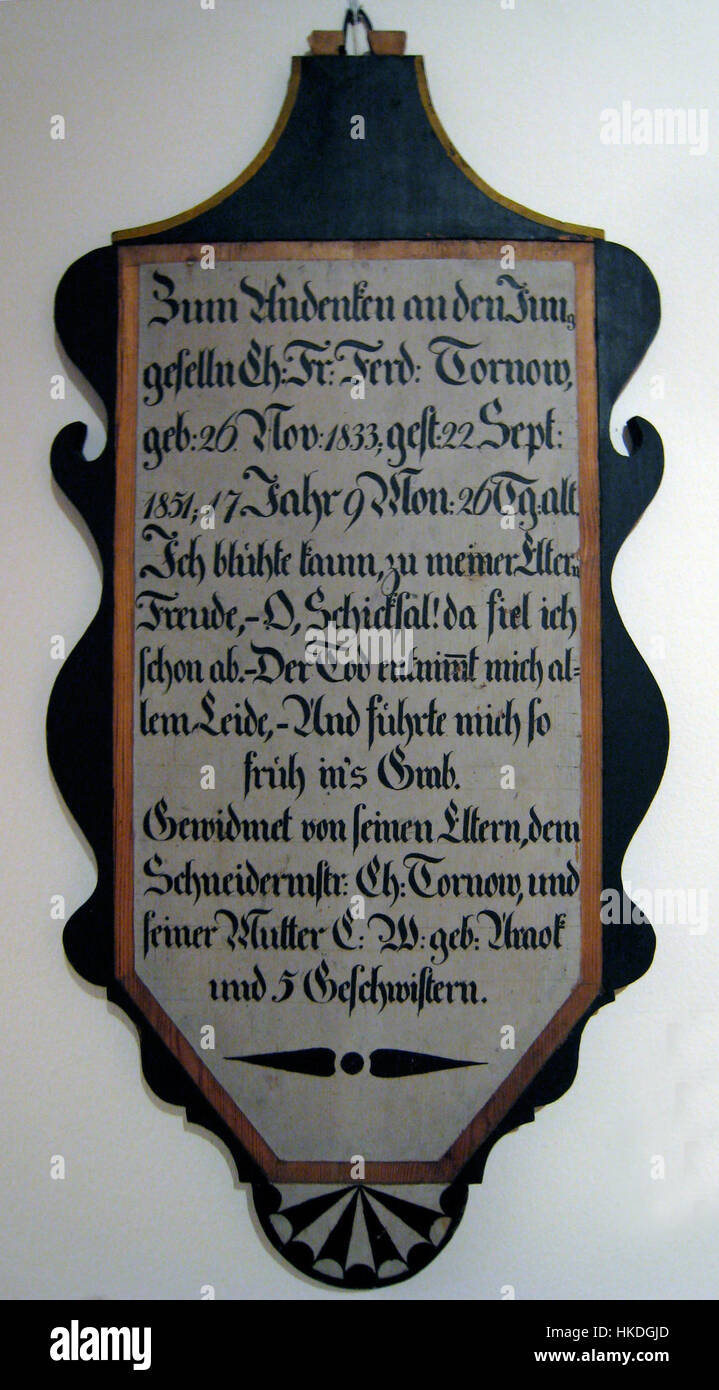 Zum Andenken an den Jun⸗
geselln Ch: Fr: Ferd: Tornow,
geb: 26. Nov: 1833, gest: 22. Sept:
1851; 17 Jahr 9 Mon: 26 Tg: alt.
Ich blühte kaum, zu meiner Eltern
Freude, – O, Schicksal! da fiel ich
schon ab. – Der Tod entnim̅t mich al⸗
lem Leide, – Und führte mich so
früh in's Grab.
Gewidmet von seinen Eltern, dem
Schneidermstr: Ch: Tornow, und
seiner Mutter C: W: geb:
und 5 Geschwistern.
alamy
Image ID: HKDGJD
www.alamy.com